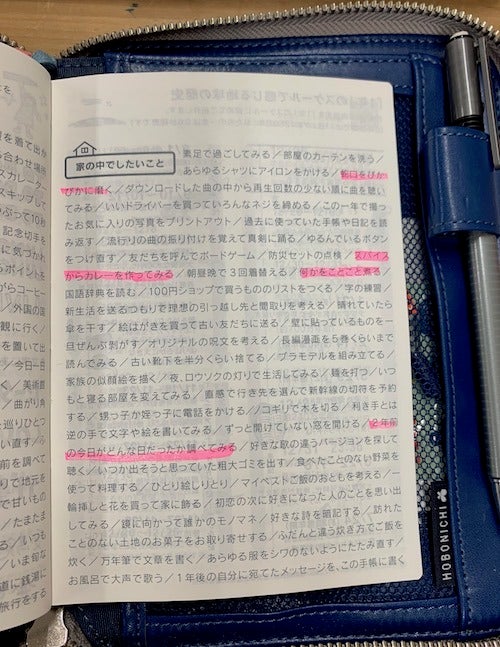 を着て出か
ち合わせ場所
スカレーター
スキップし
ぶって10秒
記念切手を
に気づかれ
ポイントを
がらコーヒー
／外国の国
観に行く／
を置いて出
／今日一日
／美術館
曲がり角
巡りひとつ
い直す／ふ
前を調べて
りで地元を
で甘いもの
たまたま
る／いつも
／いま旬な
道に銭湯に
旅行をする
家の中でしたいこと
素足で過ごしてみる／部屋のカーテンを洗う／
あらゆるシャツにアイロンをかける／蛇口をぴか
ぴかに磨く／ダウンロードした曲の中から再生回数の少ない順に曲を聴い
てみる／いいドライバーを買っていろんなネジを締める／この一年で撮っ
たお気に入りの写真をプリントアウト／過去に使っていた手帳や日記を読
み返す／流行りの曲の振り付けを覚えて真剣に踊る／ゆるんでいるボタン
をつけ直す／友だちを呼んでボードゲーム／防災セットの点検／スパイス
からカレーを作ってみる／朝昼晩で3回着替える／何かをことこと煮る／
国語辞典を読む／100円ショップで買うもののリストをつくる／字の練習／
新生活を送るつもりで理想の引っ越し先と間取りを考える／晴れていたら
傘を干す／絵はがきを買って古い友だちに送る／壁に貼っているものを一
旦ぜんぶ剝がす／オリジナルの呪文を考える／長編漫画を5巻くらいまで
読んでみる／古い靴下を半分くらい捨てる／プラモデルを組み立てる／
家族の似顔絵を描く／夜、ロウソクの灯りで生活してみる／麺を打つ／いつ
もと寝る部屋を変えてみる／直感で行き先を選んで新幹線の切符を予約
する／甥っ子か姪っ子に電話をかける／ノコギリで木を切る／利き手とは
逆の手で文字や絵を書いてみる／ずっと開けていない窓を開ける／2年前
の今日がどんな日だったか調べてみる／好きな歌の違うバージョンを探して
聴く／いつか出そうと思っていた粗大ゴミを出す／食べたことのない野菜を
使って料理する／ひとり絵しりとり／マイベストご飯のおともを考える／一
輪挿しと花を買って家に飾る／初恋の次に好きになった人のことを思い出
してみる／鏡に向かって誰かのモノマネ／好きな詩を暗記する／訪れた
ことのない土地のお菓子をお取り寄せする／ふだんと違う炊き方でご飯を
炊く／万年筆で文章を書く／あらゆる服をシワのないようにたたみ直す／
お風呂で大声で歌う／1年後の自分に宛てたメッセージを、この手帳に書く
HOBONICHI